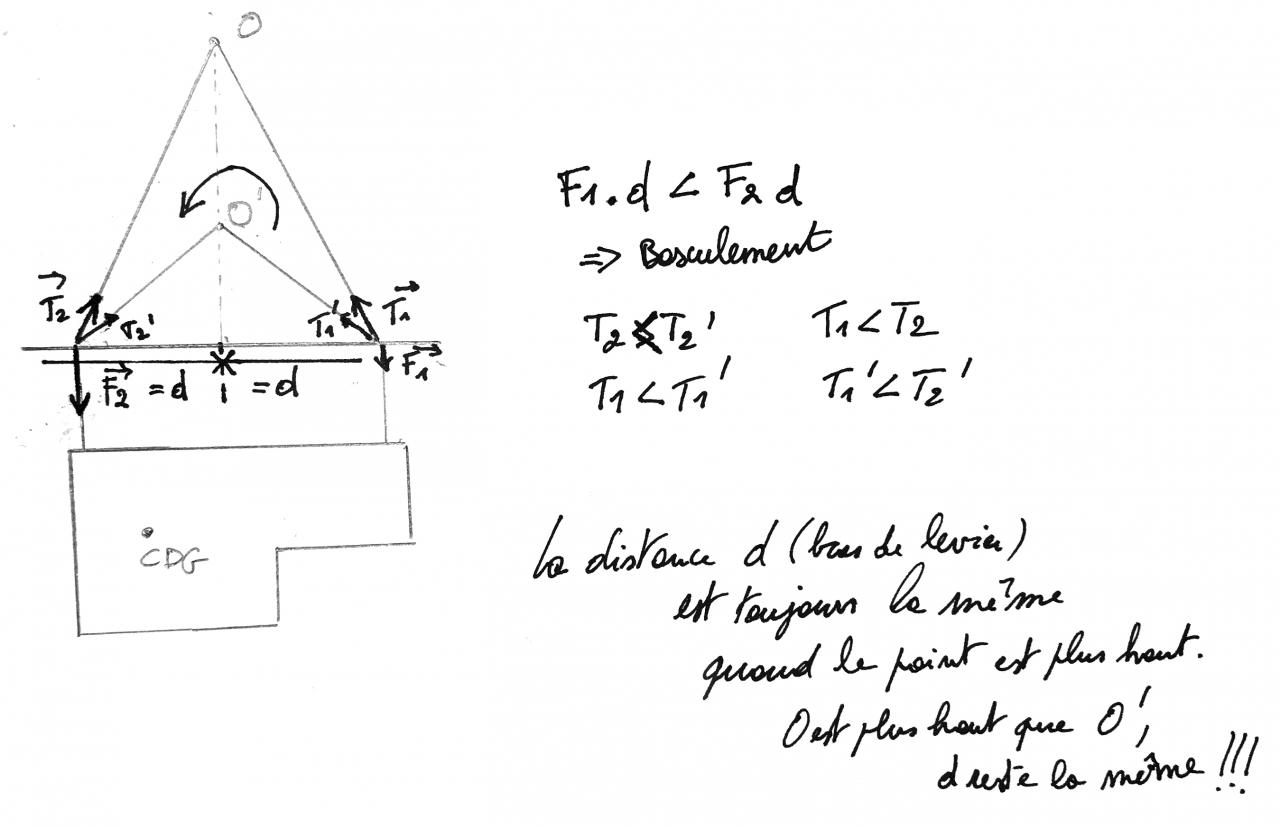 O
O'
T₂
T₂'
T₁'
T₁
F₂ = d
= d
F₁
CDG
F₁.d < F₂ d
=> Basculement
T₂ < T₂' T₁ < T₂
T₁ < T₁' T₁' < T₂'
La distance d (bras de levier)
est toujours la même
quand le point est plus haut.
O est plus haut que O',
d reste la même !!!